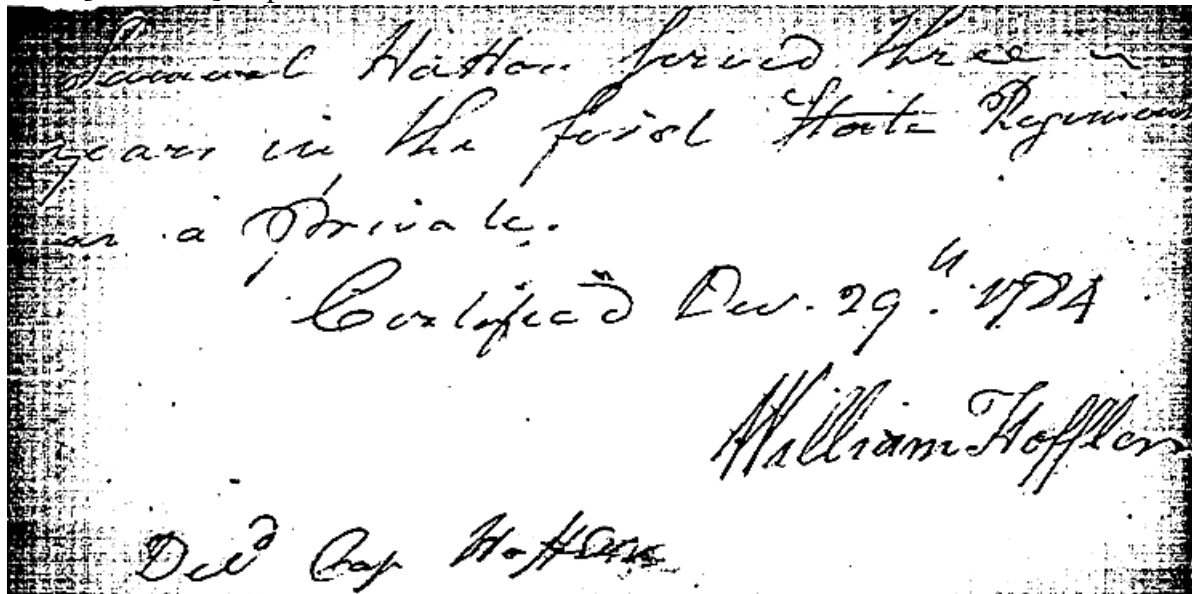 Samuel Hatton Served three
years in the first State Regiment
as a Private.
Certified Dec. 29th 1784
William Hoffler
Deld Cap Hoffler